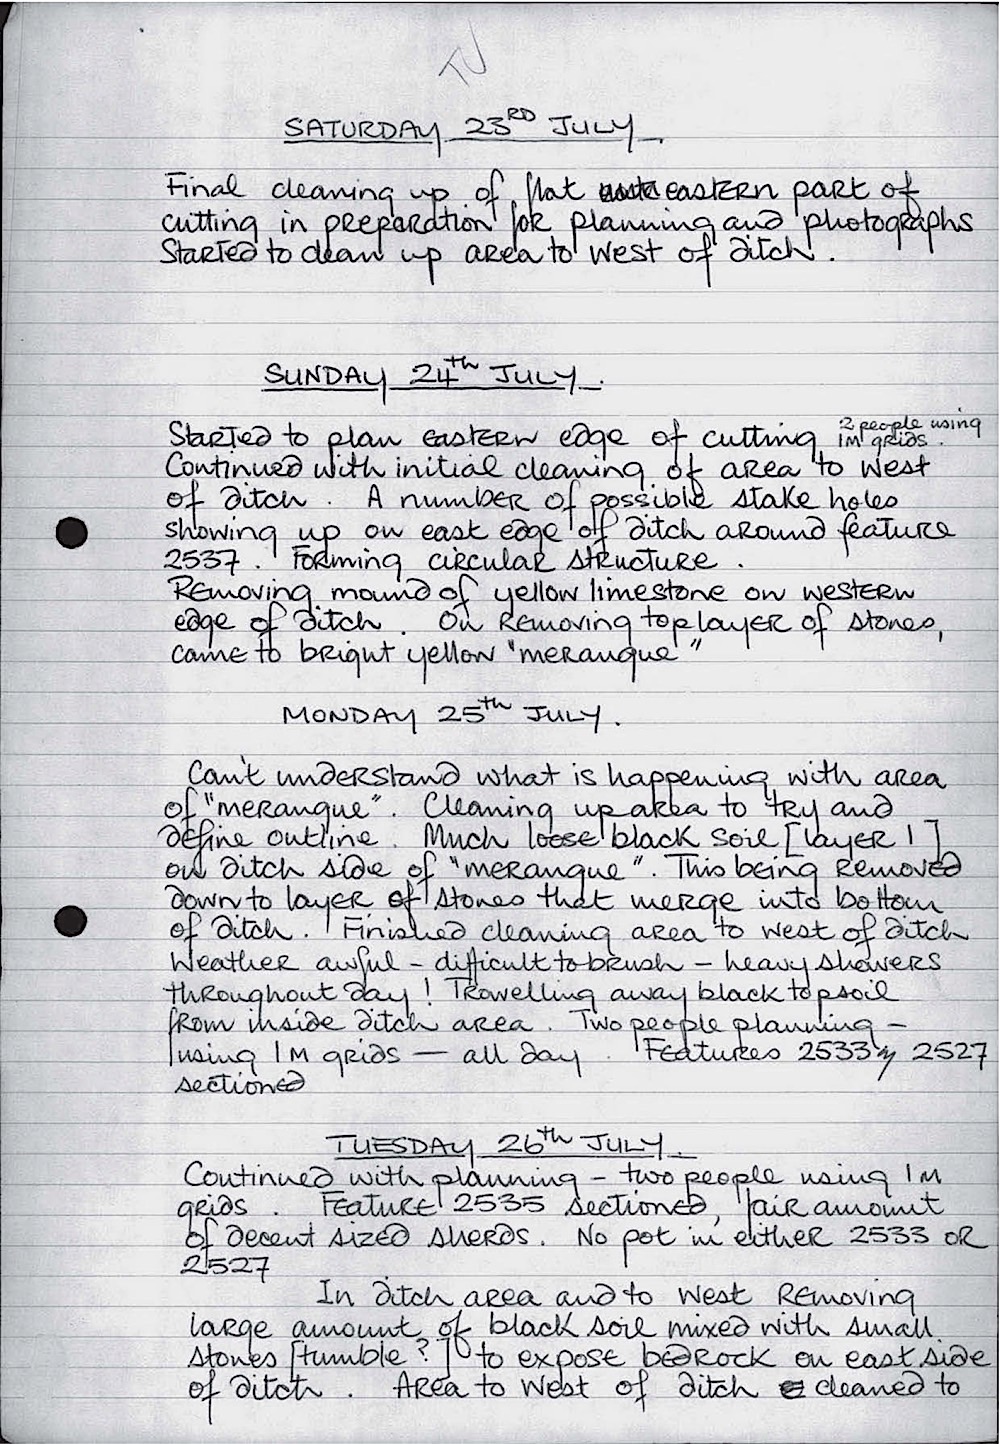 TJ
SATURDAY 23RD JULY.
Final cleaning up of flat eastern part of
cutting in preparation for planning and photographs
Started to clean up area to West of ditch.
SUNDAY 24th JULY.
Started to plan eastern edge of cutting 2 people using 1M grids.
Continued with initial cleaning of area to West
of ditch. A number of possible stake holes
showing up on east edge of ditch around feature
2537. Forming circular structure.
Removing mound of yellow limestone on western
edge of ditch. On removing top layer of stones,
came to bright yellow "merangue"
MONDAY 25th JULY.
Can't understand what is happening with area
of "merangue". Cleaning up area to try and
define outline. Much loose black soil [layer 1]
on ditch side of "merangue". This being removed
down to layer of stones that merge into bottom
of ditch. Finished cleaning area to west of ditch
Weather awful - difficult to brush - heavy showers
throughout day! Trowelling away black topsoil
from inside ditch area. Two people planning -
using 1M grids - all day. Features 2533 & 2527
sectioned
TUESDAY 26th JULY.
Continued with planning - two people using 1M
grids. Feature 2535 sectioned, fair amount
of decent sized sherds. No pot in either 2533 or
2527
In ditch area and to West removing
large amount of black soil mixed with small
stones [tumble?] to expose bedrock on east side
of ditch. Area to West of ditch cleaned to